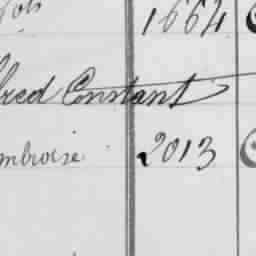 1664
fred Constant
mbroise 2013